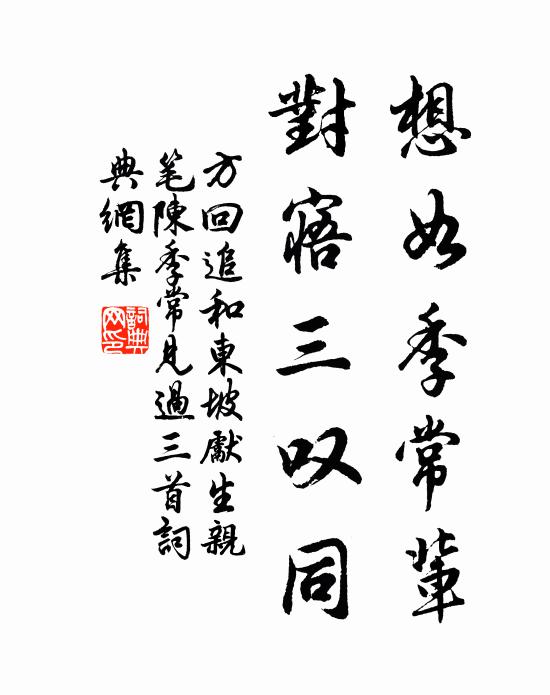 想如季常輩
對寤三叹同
方回追和東坡獻生親
笔陳季常見過三首詞
典網集
詞典网印